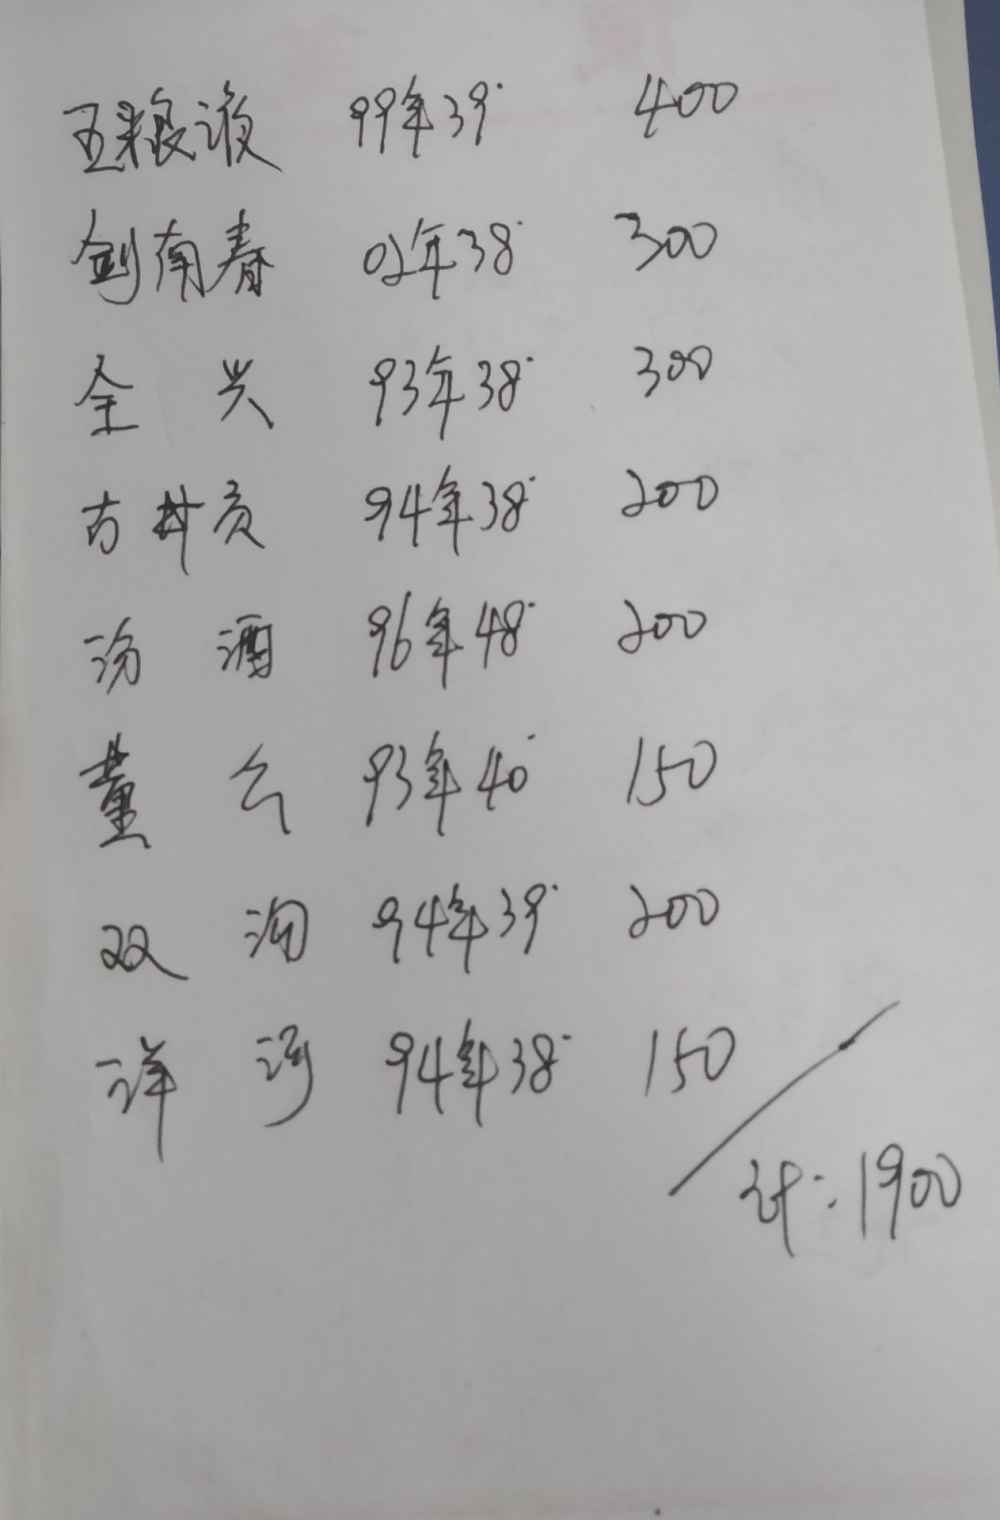 五粮液 99年39° 400
剑南春 02年38° 300
全兴 93年38° 300
古井贡 94年38° 200
汾酒 96年48° 200
董公 93年40° 150
双沟 94年39° 200
洋河 94年38° 150
计:1900